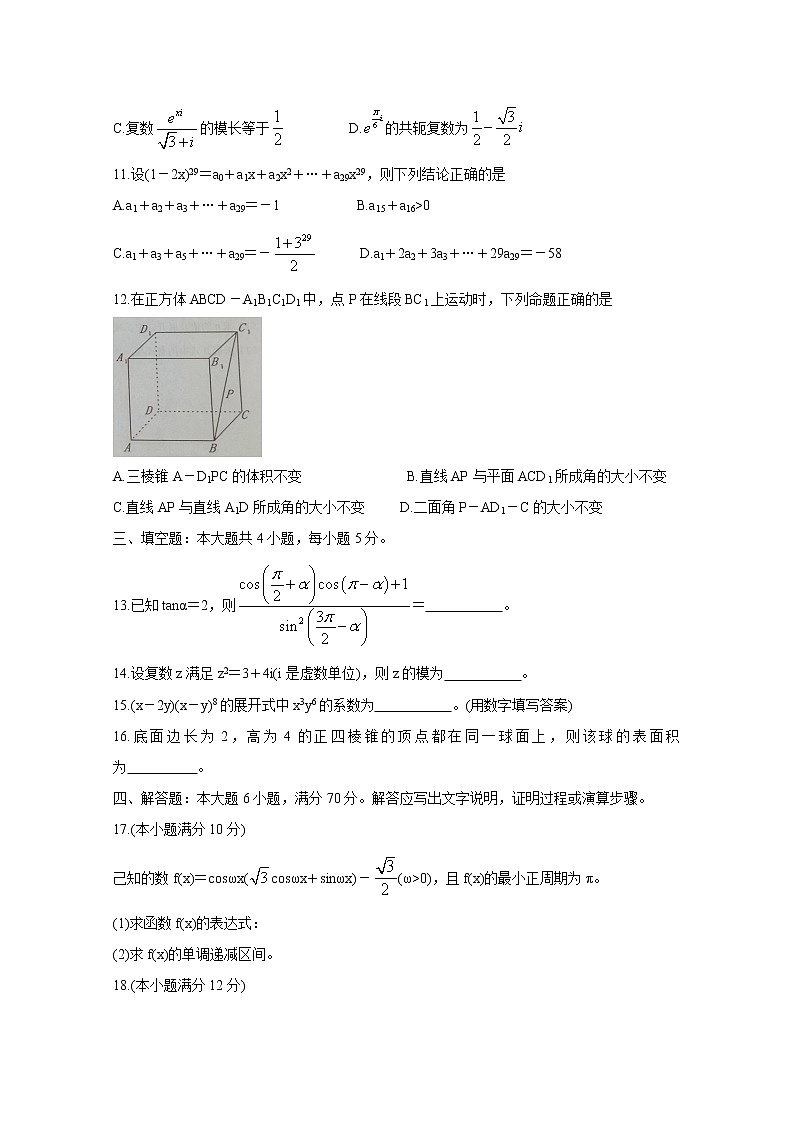 C.复数 e^{xi}/(√3+i) 的模长等于 1/2 D.e^{(π/6)i}的共轭复数为 1/2-(√3/2)i
11.设(1-2x)²⁹=a₀+a₁x+a₂x²+…+a₂₉x²⁹，则下列结论正确的是
A.a₁+a₂+a₃+…+a₂₉=-1 B.a₁₅+a₁₆>0
C.a₁+a₃+a₅+…+a₂₉=-(1+3²⁹)/2 D.a₁+2a₂+3a₃+…+29a₂₉=-58
12.在正方体ABCD-A₁B₁C₁D₁中，点P在线段BC₁上运动时，下列命题正确的是
D₁ C₁
A₁ B₁
P
D C
A B
A.三棱锥A-D₁PC的体积不变 B.直线AP与平面ACD₁所成角的大小不变
C.直线AP与直线A₁D所成角的大小不变 D.二面角P-AD₁-C的大小不变
三、填空题：本大题共4小题，每小题5分。
13.已知tanα=2，则 (cos(π/2+α)cos(π-α)+1)/(sin²(3π/2-α)) = 。
14.设复数z满足z²=3+4i(i是虚数单位)，则z的模为 。
15.(x-2y)(x-y)⁸的展开式中x³y⁶的系数为 。(用数字填写答案)
16.底面边长为2，高为4的正四棱锥的顶点都在同一球面上，则该球的表面积
为 。
四、解答题：本大题6小题，满分70分。解答应写出文字说明，证明过程或演算步骤。
17.(本小题满分10分)
己知的数f(x)=cosωx(√3cosωx+sinωx)-√3/2(ω>0)，且f(x)的最小正周期为π。
(1)求函数f(x)的表达式：
(2)求f(x)的单调递减区间。
18.(本小题满分12分)